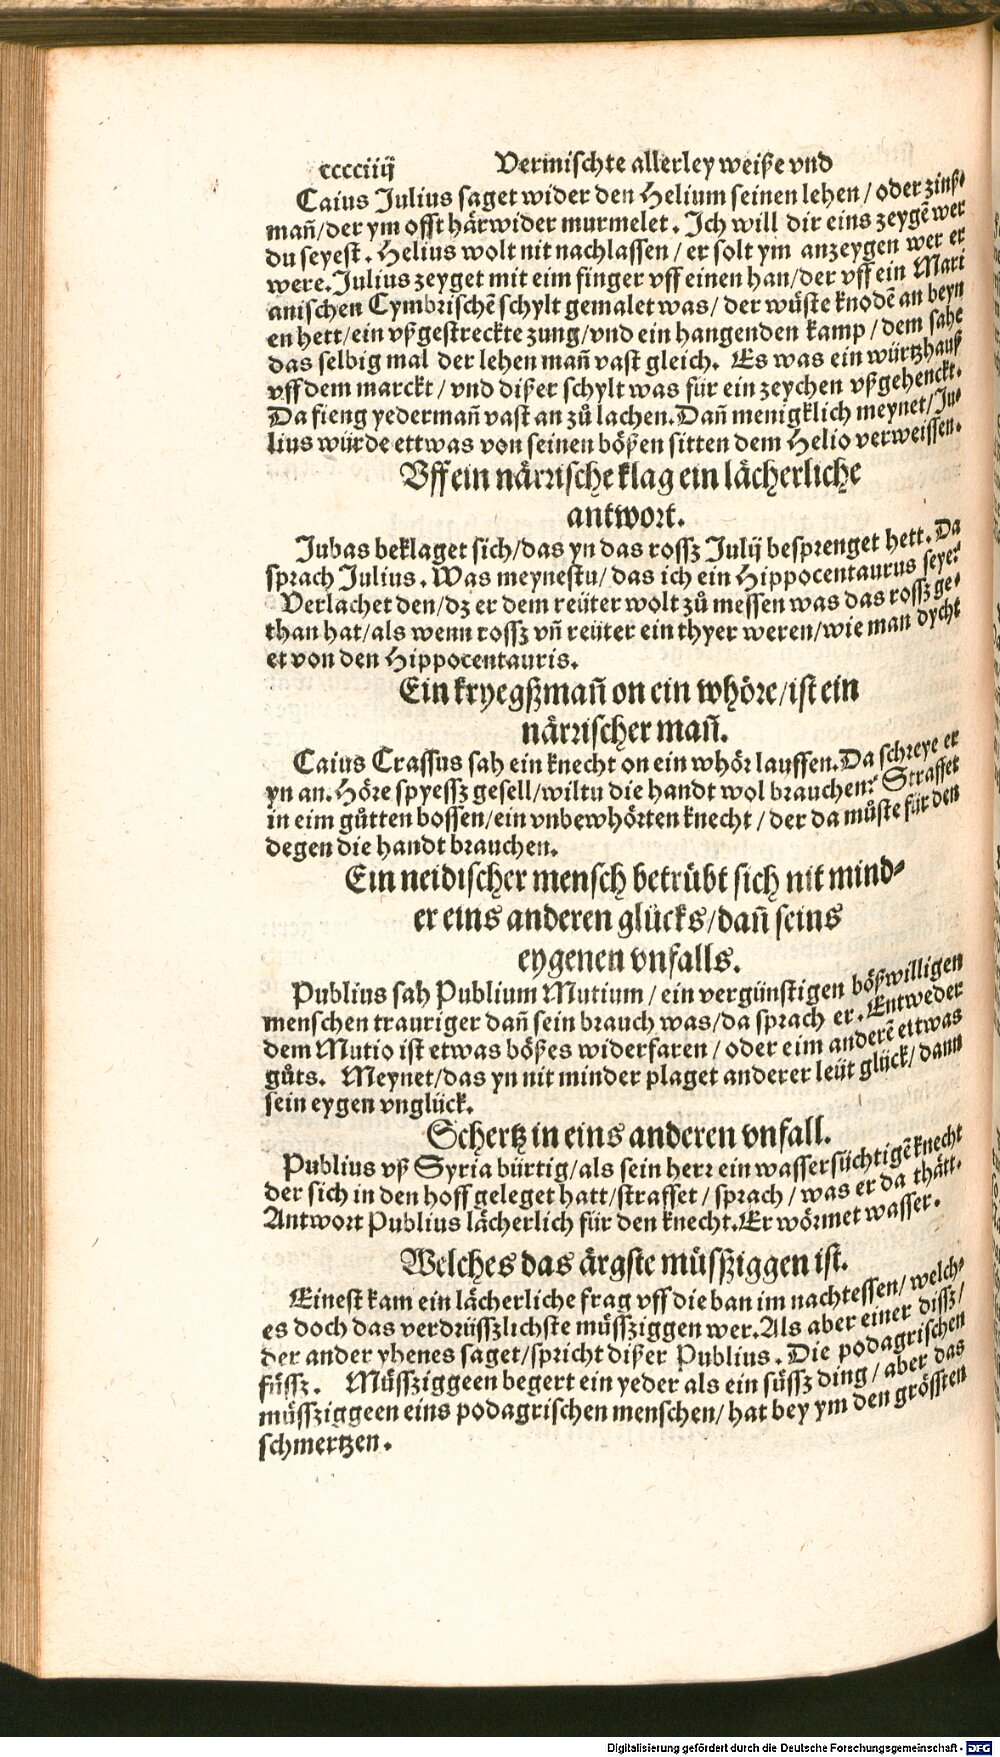 cccciiij Vermischte allerley weiße vnd
Caius Julius saget wider den Helium seinen lehen / oder zinß⸗
mañ/der ym offt härwider murmelet. Ich will dir eins zeygē wer
du seyest. Helius wolt nit nachlassen / er solt ym anzeygen wer er
were. Julius zeyget mit eim finger vff einen han/der vff ein Mari
anischen Cymbrischē schylt gemalet was / der wůste knodē an beyn
en hett/ein vßgestreckte zung/vnd ein hangenden kamp / dem sahe
das selbig mal der lehen mañ vast gleich. Es was ein würtzhauß
vff dem marckt / vnd dißer schylt was für ein zeychen vßgehenckt.
Da fieng yedermañ vast an zů lachen. Dañ menigklich meynet/Ju⸗
lius würde ettwas von seinen bößen sitten dem Helio verweissen.
Vff ein närrische klag ein lächerliche
antwort.
Jubas beklaget sich/das yn das rossz Julij besprenget hett. Da
sprach Julius. Was meynestu/das ich ein Hippocentaurus seye?
Verlachet den/dz er dem reüter wolt zů messen was das rossz ge⸗
than hat/als wenn rossz vñ reüter ein thyer weren/wie man dycht
et von den Hippocentauris.
Ein kryegßmañ on ein whöre/ist ein
närrischer mañ.
Caius Crassus sah ein knecht on ein whör lauffen. Da schreye er
yn an. Höre spyessz gesell/wiltu die handt wol brauchen? Straffet
in eim gůtten bossen/ein vnbewhörten knecht / der da můste für den
degen die handt brauchen.
Ein neidischer mensch betrübt sich nit mind⸗
er eins anderen glücks/dañ seins
eygenen vnfalls.
Publius sah Publium Mutium / ein vergünstigen bößwilligen
menschen trauriger dañ sein brauch was/da sprach er. Entweder
dem Mutio ist etwas bößes widerfaren / oder eim anderē ettwas
gůts. Meynet/das yn nit minder plaget anderer leüt glück/dann
sein eygen vnglück.
Schertz in eins anderen vnfall.
Publius vß Syria bürtig/als sein herr ein wassersüchtigē knecht
der sich in den hoff geleget hatt/straffet / sprach / was er da thätt.
Antwort Publius lächerlich für den knecht. Er wörmet wasser.
Welches das ärgste müsßiggen ist.
Einest kam ein lächerliche frag vff die ban im nachtessen/welch⸗
es doch das verdrüsszlichste müssziggen wer. Als aber einer dissz/
der ander yhenes saget/spricht dißer Publius. Die podagrischen
füssz. Müssziggeen begert ein yeder als ein süssz ding / aber das
müssziggeen eins podagrischen menschen/hat bey ym den grössten
schmertzen.
Digitalisierung gefördert durch die Deutsche Forschungsgemeinschaft - DFG